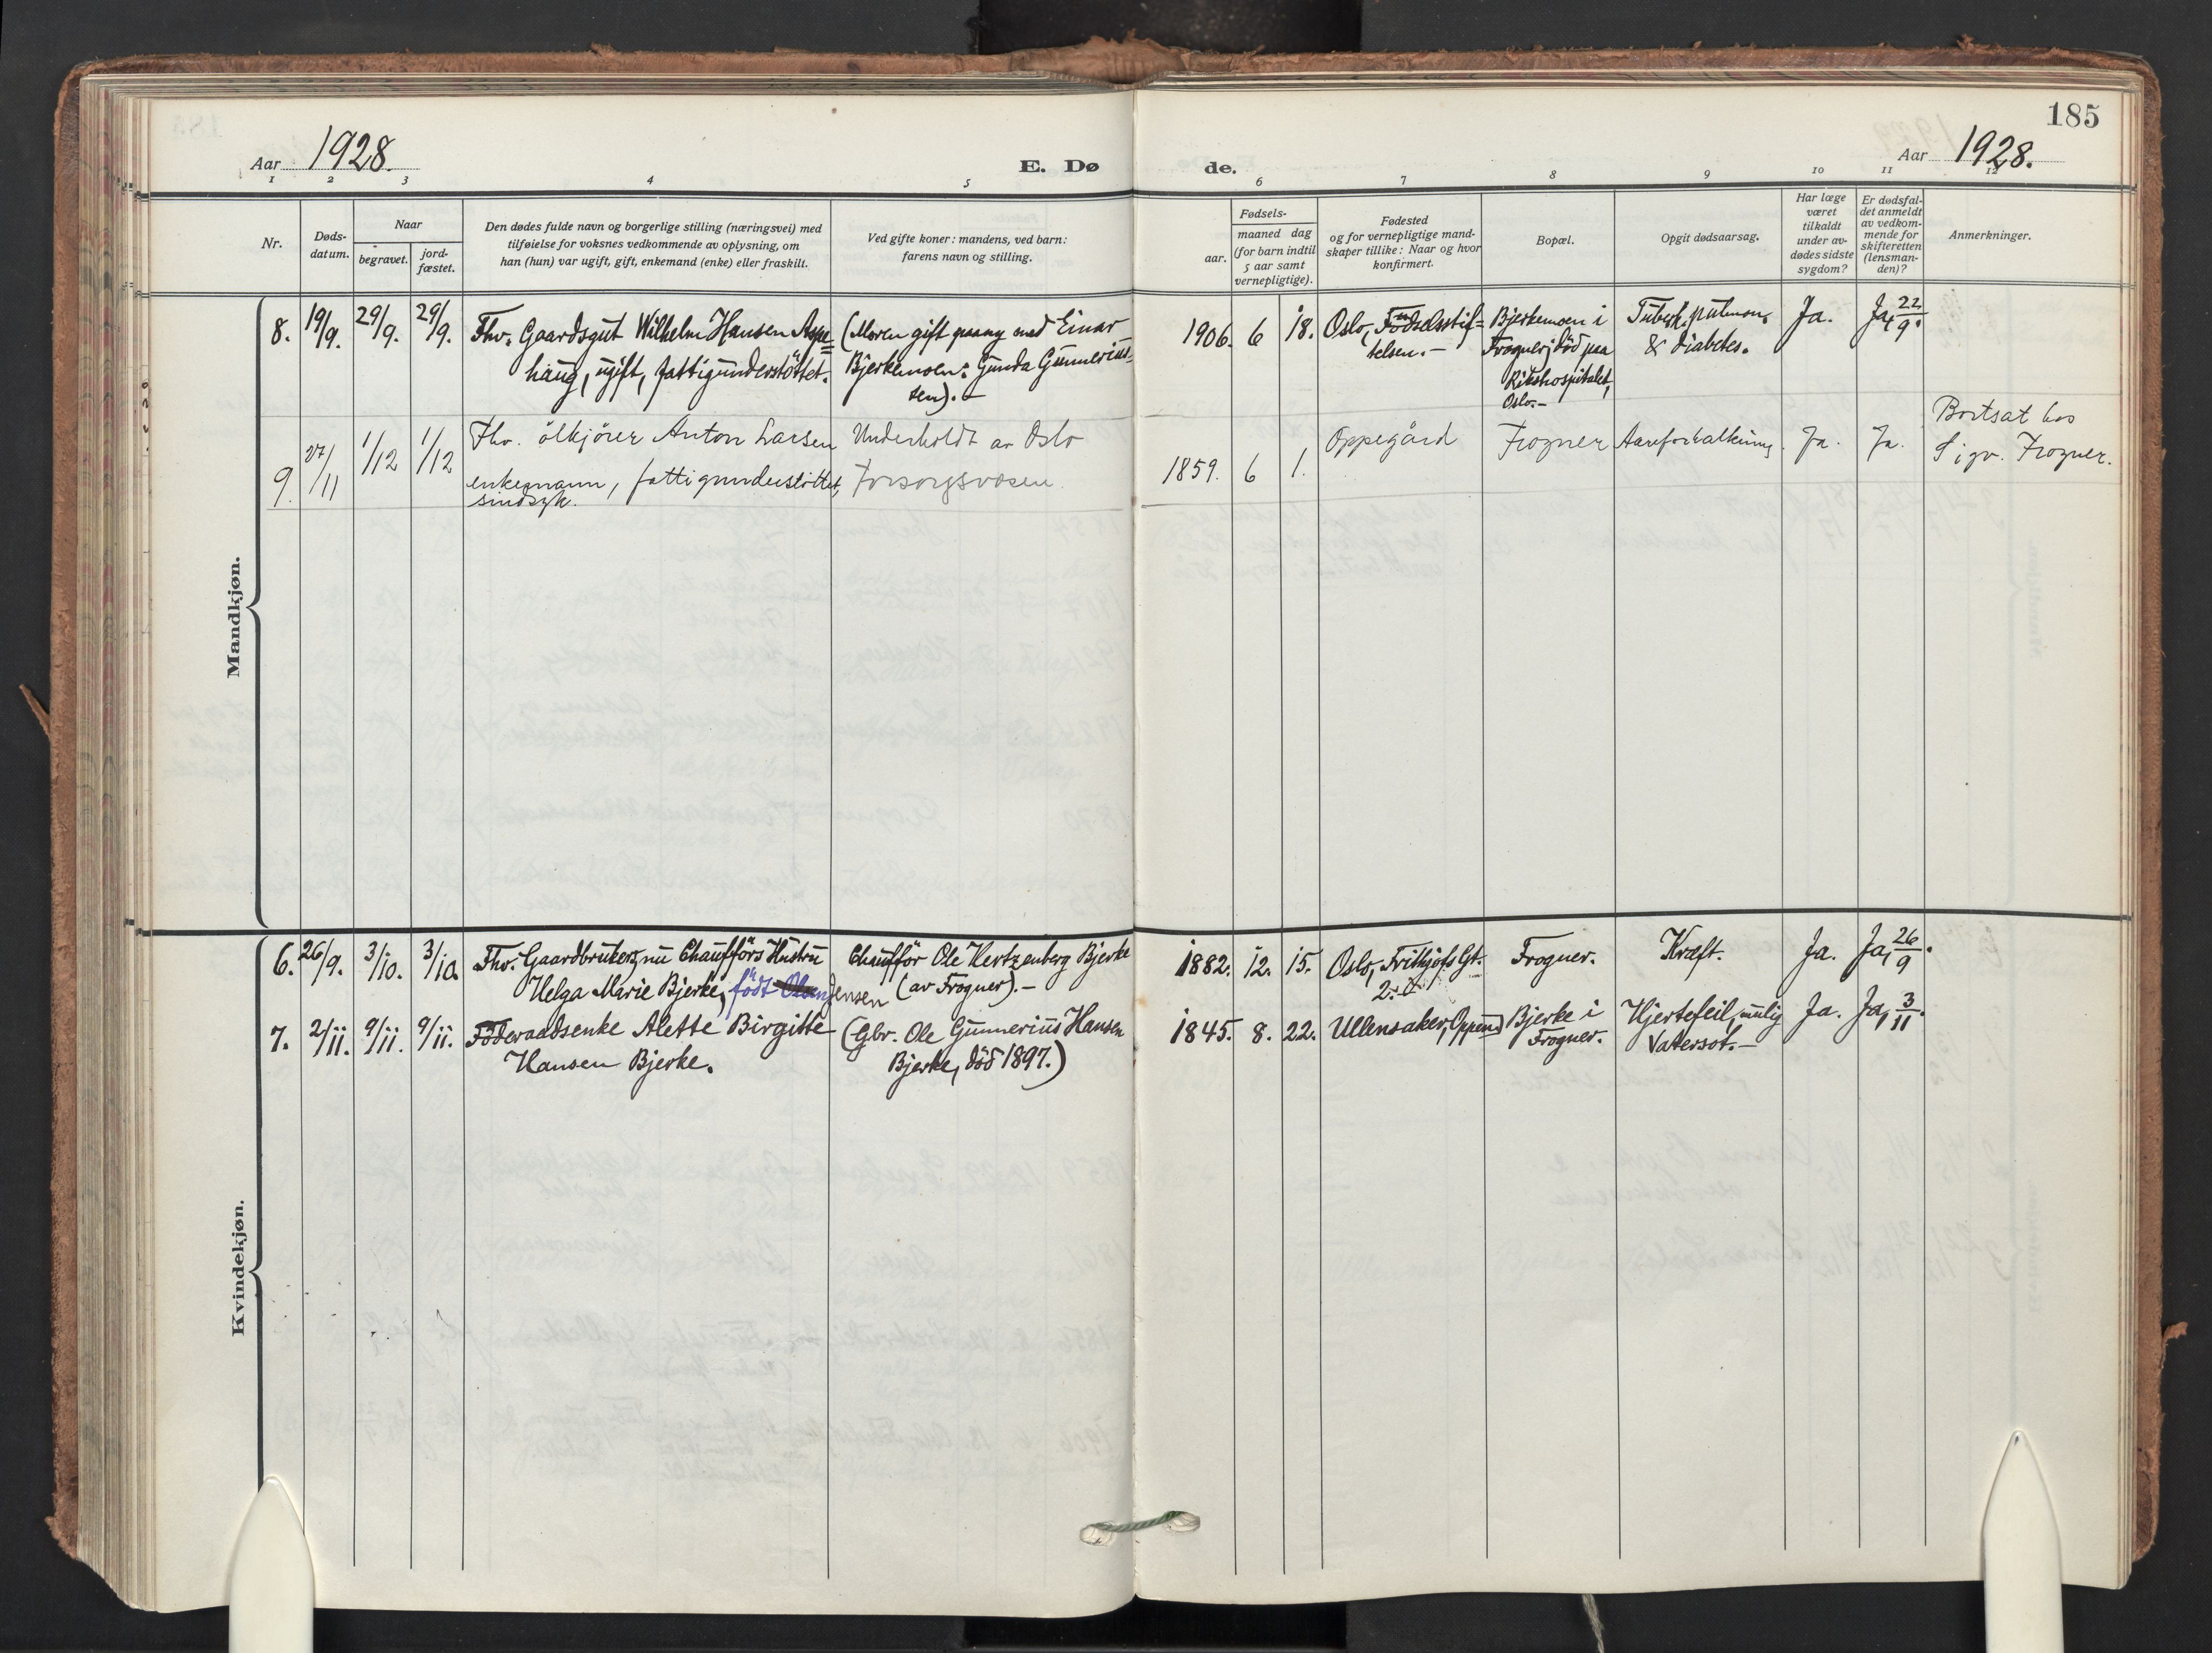 185
Aar 1928. E. Dø de. Aar 1928.
1 2 3 4 5 6 7 8 9 10 11 12
Nr.
Døds-
datum.
Naar
begravet.
jord-
fæstet.
Den dødes fulde navn og borgerlige stilling (næringsvei) med
tilføielse for voksnes vedkommende av oplysning, om
han (hun) var ugift, gift, enkemand (enke) eller fraskilt.
Ved gifte koner: mandens, ved barn:
farens navn og stilling.
Fødsels-
aar.
maaned dag
(for barn indtil
5 aar samt
vernepligtige).
Fødested
og for vernepligtige mand-
skaper tillike: Naar og hvor
konfirmert.
Bopæl.
Opgit dødsaarsag.
Har læge
været
tilkaldt
under av-
dødes sidste
sygdom?
Er dødsfal-
det anmeldt
av vedkom-
mende for
skifteretten
(lensman-
den)?
Anmerkninger.
Mandkjøn.
8. 19/9. 29/9. 29/9.
Fhv. Gaardsgut Wilhelm Hansen Aspe=
haug, ugift, fattigunderstöttet.
(Moren gift paany med Einar
Bjerkemoen: Gunda Gunnerius=
sen).-
1906. 6 18.
Oslo, Födselsstif=
telsen.-
Bjerkemoen i
Frogner; död paa
Rikshospitalet,
Oslo.-
Tuberk. pulmon.
& diabetes.
Ja. Ja, 22/9.
9. 27/11 1/12 1/12
Fhv. ölkjörer Anton Larsen
enkemann, fattigunderstöttet,
sindsyk.
Underholdt av Oslo
Forsorgsvæsen.
1859. 6 1.
Oppegård
Frogner
Aareforkalkning.
Ja. Ja.
Bortsat hos
Sigv. Frogner.
Kvindekjøn.
6. 26/9. 3/10. 3/10.
Fhv. Gaardbrukers, nu Chaufförs Hustru
Helga Marie Bjerke, födt Olsen Jensen
Chaufför Ole Hertzenberg Bjerke
(av Frogner).-
1882. 12. 15.
Oslo, Frithjofs Gt.
2.
Frogner.
Kræft.
Ja. Ja, 26/9.
7. 2/11. 9/11. 9/11.
Föderaadsenke Alette Birgitte
Hansen Bjerke.
(Gbr. Ole Gunnerius Hansen
Bjerke, död 1897.)
1845. 8. 22.
Ullensaker, Oppen
Bjerke i
Frogner.
Hjertefeil, mulig
Vatersot.-
Ja. Ja, 3/11.